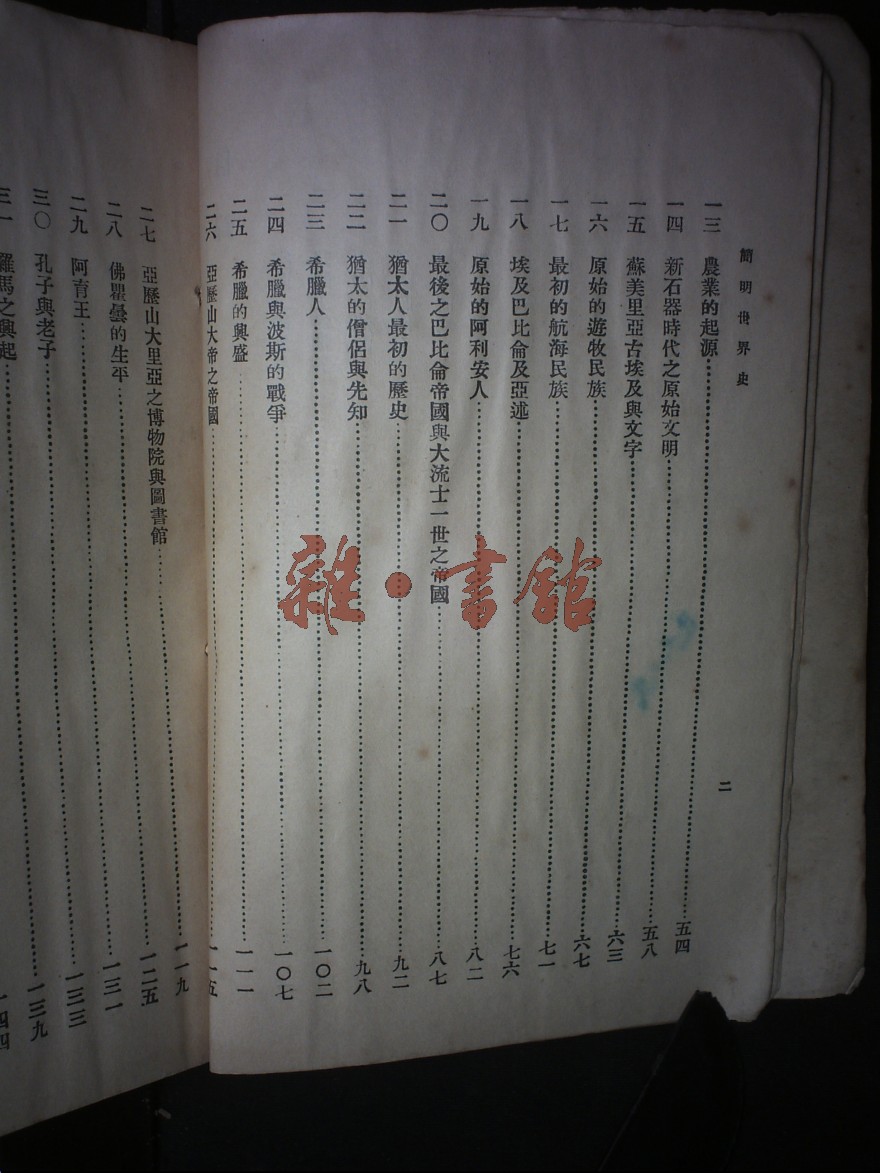 簡明世界史
二
一三 農業的起源……五四
一四 新石器時代之原始文明……五八
一五 蘇美里亞古埃及與文字……六三
一六 原始的遊牧民族……六七
一七 最初的航海民族……七一
一八 埃及巴比倫及亞述……七六
一九 原始的阿利安人……八二
二〇 最後之巴比倫帝國與大流士一世之帝國……八七
二一 猶太人最初的歷史……九二
二二 猶太的僧侶與先知……九八
二三 希臘人……一〇二
二四 希臘與波斯的戰爭……一〇七
二五 希臘的興盛……一一一
二六 亞歷山大帝之帝國……一一五
二七 亞歷山大里亞之博物院與圖書館……一一九
二八 佛瞿曇的生平……一二五
二九 阿育王……一三一
三〇 孔子與老子……一三三
三一 羅馬之興起……一三九
一四四
雜·書館